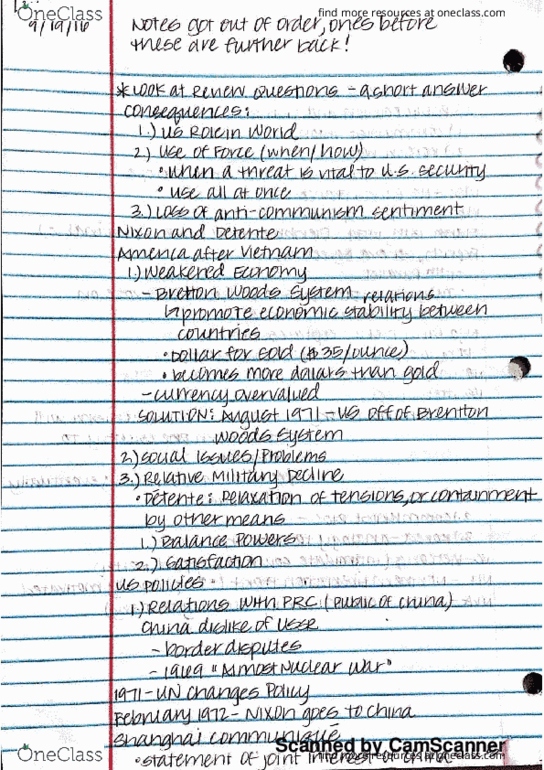 OneClass
find more resources at oneclass.com
9/19/16
Notes got out of order, ones before
these are further back!
*Look at Review Questions - a short answer
consequences:
1.) US Role in World
2.) Use of Force (when/how)
• when a threat is vital to U.S. security
• use all at once
3.) Loss of anti-communism sentiment
Nixon and Detente
America after Vietnam
1.) Weakened Economy
- Bretton Woods System relations
↳ promote economic stability between
countries
• Dollar for Gold ($35/ounce)
• becomes more dollars than gold
- currency overvalued
SOLUTION: August 1971 - US off of Brentton
Woods System
2.) Social Issues/Problems
3.) Relative Military Decline
• Détente: Relaxation of tensions, or containment
by other means
1.) Balance Powers
2.) Satisfaction
US Policies
1.) Relations with PRC (Public of China)
China dislike of USSR
- border disputes
- 1969 "Almost Nuclear War"
1971 - UN Changes Policy
February 1972 - Nixon goes to China
Shanghai communiqué
Scanned by CamScanner
OneClass
• statement of joint
find more resources at oneclass.com